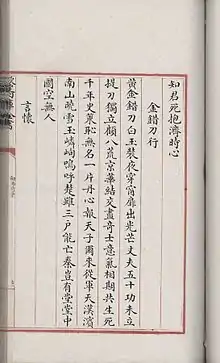 知君死抱濟時心
金錯刀行
黃金錯刀白玉裝夜穿窗扉出光芒丈夫五十功未立
提刀獨立顧八荒京華結交盡奇士意氣相期共生死
千年史策恥無名一片丹心報天子爾來從軍天漢濱
南山曉雪玉嶙峋嗚呼楚雖三户能亡秦豈有堂堂中
國空無人
言懷